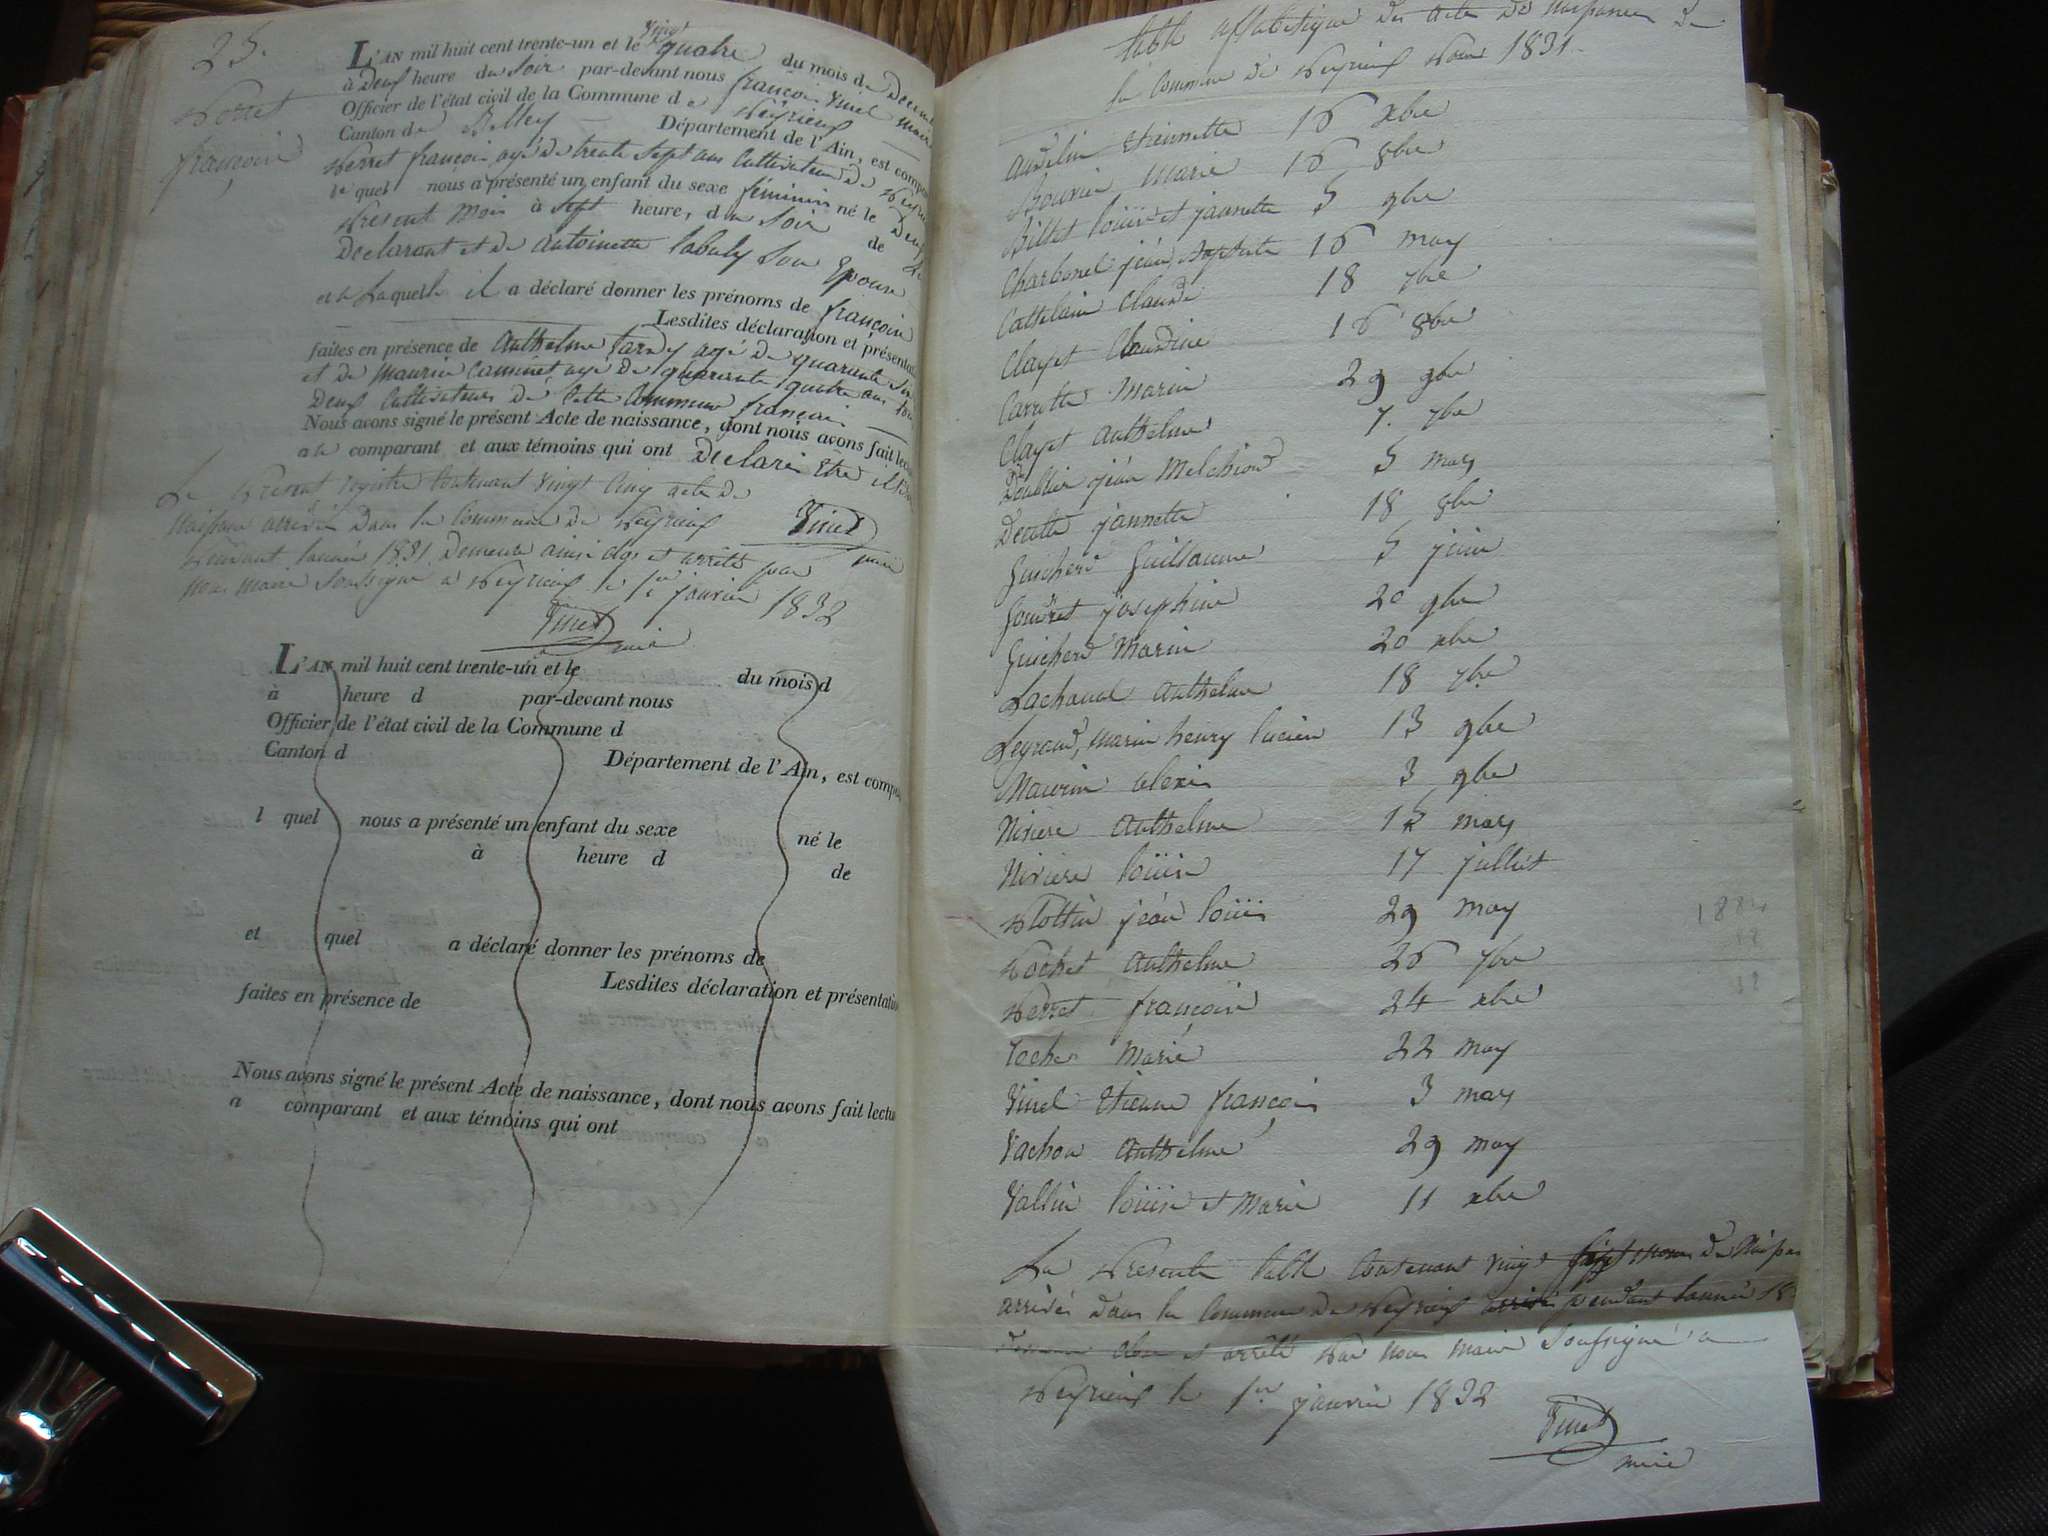 25.
Perret
françoise
L'AN mil huit cent trente-un et le vingt quatre du mois de Decemb
à Deux heure du soir par-devant nous françois Vinet maire
Officier de l'état civil de la Commune de Peyrieux
Canton de Belley Département de l'Ain, est compa
Perret françois agé de trente sept ans Cultivateur de Peyri
le quel nous a présenté un enfant du sexe féminin né le Deux
Present mois à sept heure, du soir de
Declarant et de antoinette Labuly son Epouse
et a Laquelle il a déclaré donner les prénoms de françoise
Lesdites déclaration et présentat
faites en présence de Anthelme tardy agé de quarante
et de maurice Caminet agé de quarante quatre ans tou
Deux Cultivateurs de Cette Commune françois
Nous avons signé le présent Acte de naissance, dont nous avons fait lect
au comparant et aux témoins qui ont Declaré Etre
Le Present registre Contenant vingt Cinq acte de
Naissance arrivée Dans la Commune de Peyrieux Vinet
Pendant lannée 1831 Demeure ainsi clos et arrêté par maire
nous maire Soussigné a Peyrieux le 1er janvier 1832
Vinet
maire
L'AN mil huit cent trente-un et le du mois d
à heure d par-devant nous
Officier de l'état civil de la Commune d
Canton d Département de l'Ain, est compa
l quel nous a présenté un enfant du sexe né le
à heure d de
et quel a déclaré donner les prénoms de
Lesdites déclaration et présentatio
faites en présence de
Nous avons signé le présent Acte de naissance, dont nous avons fait lectu
a comparant et aux témoins qui ont
table alfabetique des actes de Naissances de
la Commune de Peyrieux Pour 1831
Etiennette 16 xbre
Marie 16 8bre
Billet louise et jannette 5 9bre
Charbonel jean Baptiste 16 may
Cattelain Claude 18 7bre
Clayet Claudine 16 8bre
Carrotte Marie 29 9bre
Clayet Anthelme 7. 7bre
Doublier jean Melchior 5 mars
Decotte jannette 18 8bre
Guicherd Guillaume 5 juin
Goudret josephine 20 9bre
Guicherd Marie 20 xbre
Lachanal Anthelme 18 7bre
Leyraud, marie henry lucien 13 9bre
Maurin Alexis 3 9bre
Niviere Anthelme 15 mars
Niviere louise 17 julliet
Plottin jean louis 29 may
Pochet Anthelme 26 7bre
Perret françoise 24 xbre
roche Marie 22 may
Vinet Etienne françois 3 mars
Vachon Anthelme 29 may
Vallin louise et Marie 11 xbre
La Presente table Contenant vingt de Naissa
arrivés dans la Commune de Peyrieux pendant lannée 18
Demeure close et arrêté Par nous maire Soussigné a
Peyrieux le 1er janvier 1832
Vinet
maire